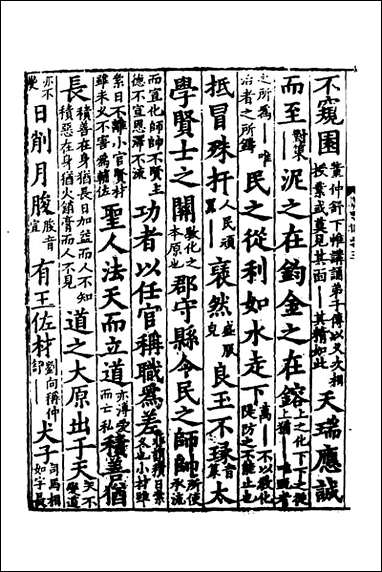 不窺園董仲舒下帷講誦弟子傳以久次相授業或莫見其面——其精如此天瑞應誠
而至對策泥之在鈞金之在鎔上之化下下之從上猶——唯甄者
之所爲——唯冶者之所鑄民之從利如水走下萬——不以教化隄防之不能止也
抵冒殊扞人民頑嚚褎然盛服良玉不瑑音篆太
學賢士之關教化之本原也郡守縣令民之師帥所使承流
而宣化師帥不賢主德不宣恩澤不流功者以任官稱職爲差非謂積日絫久也小材雖
絫日不離小官賢材雖未久不害爲輔佐聖人法天而立道亦溥愛而亡私積善猶
長積善在身猶長日加益而人不知積惡在身猶火銷膏而人不見道之大原出于天天不變道
亦不變日削月朘朘音宣有王佐材劉向稱仲舒——犬子司馬相如字長